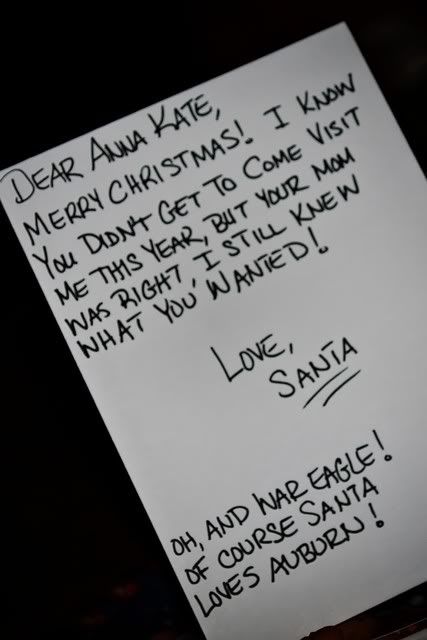 DEAR ANNA KATE,
MERRY CHRISTMAS! I KNOW
YOU DIDN'T GET TO COME VISIT
ME THIS YEAR, BUT YOUR MOM
WAS RIGHT, I STILL KNEW
WHAT YOU WANTED!
LOVE,
SANTA
OH, AND WAR EAGLE!
OF COURSE SANTA
LOVES AUBURN!